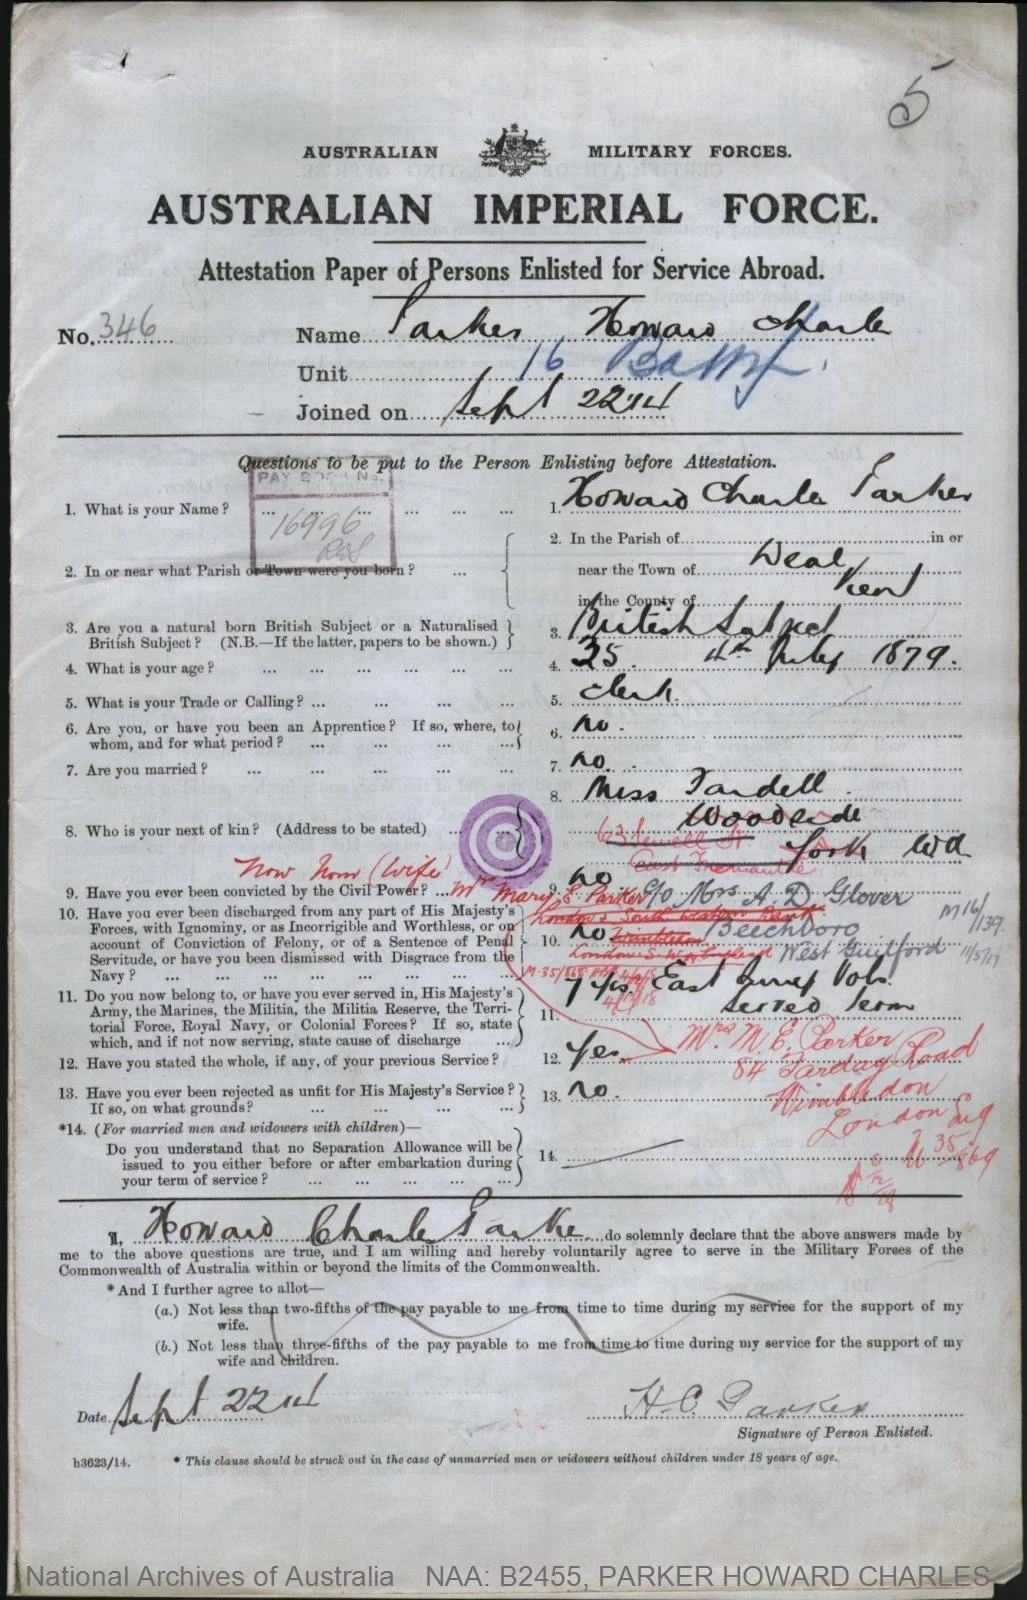 5
AUSTRALIAN MILITARY FORCES.
AUSTRALIAN IMPERIAL FORCE.
Attestation Paper of Persons Enlisted for Service Abroad.
No. 346 Name Parker Howard Charles
Unit 16 Battn.
Joined on Sept 22 14
Questions to be put to the Person Enlisting before Attestation.
PAY BOOK No.
16996
1. What is your Name? ... ... ... ... ... 1. Howard Charles Parker
2. In or near what Parish or Town were you born? ... 2. In the Parish of in or
near the Town of Deal
in the County of Kent
3. Are you a natural born British Subject or a Naturalised
British Subject? (N.B.—If the latter, papers to be shown.) 3. British Subject
4. What is your age? ... ... ... ... ... 4. 35. 4th July 1879.
5. What is your Trade or Calling? ... ... ... ... 5. Clerk.
6. Are you, or have you been an Apprentice? If so, where, to
whom, and for what period? ... ... ... ... 6. no.
7. Are you married? ... ... ... ... ... 7. no.
8. Who is your next of kin? (Address to be stated) ... 8. Miss Tandell
Woodside
63 Sewell St York WA
East Fremantle
Now Nom (Wife)
9. Have you ever been convicted by the Civil Power? ... 9. no
Mrs Mary E Parker C/o Mrs A D Glover
London & South Western Bank
Wimbledon Beechboro
London S.W. England West Guilford
M16/139
11/5/17
10. Have you ever been discharged from any part of His Majesty's
Forces, with Ignominy, or as Incorrigible and Worthless, or on
account of Conviction of Felony, or of a Sentence of Penal
Servitude, or have you been dismissed with Disgrace from the
Navy? ... ... ... ... ... ... 10. no
11. Do you now belong to, or have you ever served in, His Majesty's
Army, the Marines, the Militia, the Militia Reserve, the Terri-
torial Force, Royal Navy, or Colonial Forces? If so, state
which, and if not now serving, state cause of discharge ... 11. Yes. East Surrey Vols.
Served Term
12. Have you stated the whole, if any, of your previous Service? 12. Yes.
Mrs. M. E. Parker
84 Road
Wimbledon
London Eng
M 35/869
13. Have you ever been rejected as unfit for His Majesty's Service?
If so, on what grounds? ... ... ... ... 13. no.
*14. (For married men and widowers with children)—
Do you understand that no Separation Allowance will be
issued to you either before or after embarkation during
your term of service? ... ... ... ... ... 14.
I, Howard Charles Parker do solemnly declare that the above answers made by
me to the above questions are true, and I am willing and hereby voluntarily agree to serve in the Military Forces of the
Commonwealth of Australia within or beyond the limits of the Commonwealth.
* And I further agree to allot—
(a.) Not less than two-fifths of the pay payable to me from time to time during my service for the support of my
wife.
(b.) Not less than three-fifths of the pay payable to me from time to time during my service for the support of my
wife and children.
Date Sept 22 14 H.C. Parker
Signature of Person Enlisted.
h3623/14. * This clause should be struck out in the case of unmarried men or widowers without children under 18 years of age.
National Archives of Australia NAA: B2455, PARKER HOWARD CHARLES